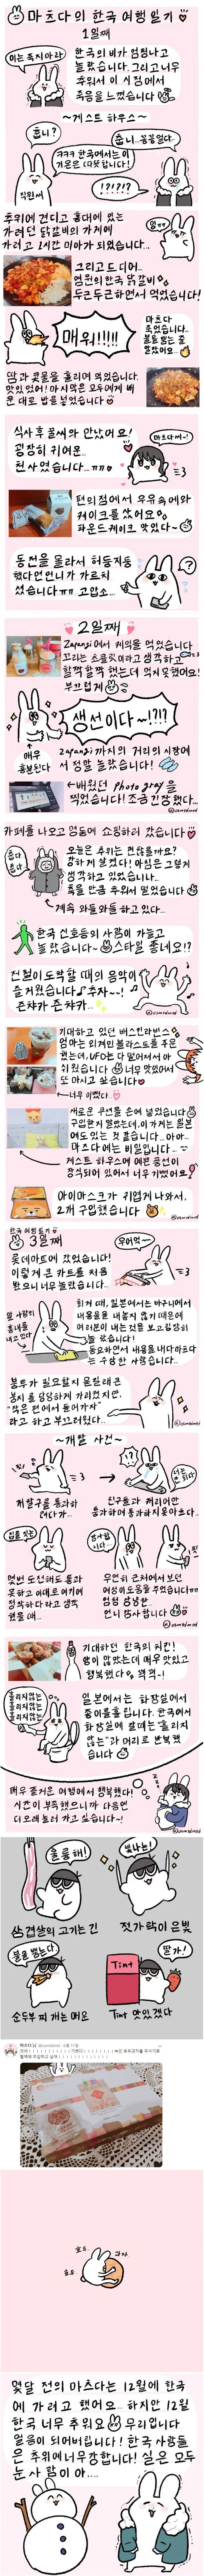 마츠다의 한국 여행일기
1일째
이는 죽지 아라
한국의 비가 엄청나고
놀랐습니다. 그리고 너무
추워서 이 시점에서
죽음을 느꼈습니다
~게스트 하우스~
춥니?
춥니..꽁꽁얼다..
ㅋㅋㅋ 한국에서는 이
기온은 따뜻합니다!
직원씨
!?!?!?
추위에 견디고 홍대에 있는
가려던 닭갈비의 가게에
가려고 1시간 미아가 되었습니다..
그리고 드디어..
염원의 한국 닭갈비
두근두근하면서 먹었습니다!
매워!!!!!
마츠다
죽었습니다..
불을 뿜는 줄
알았어요...
땀과 콧물을 흘리며 먹었습니다.
맛있었어! 마지막은 모두에게 배
운 대로 밥을 넣었습니다
식사 후 꿀씨와 만났어요!
굉장히 귀여운..
천사였습니다...ㅠㅠ
마츠다씨~!
편의점에서 우유 속에와
케이크를 샀어요
파운드케이크 맛있다~
동전을 몰라서 허둥지둥
했다면 언니가 가르치
셨습니다ㅠㅠ 고맙소...
2일째
Zapangi에서 케익을 먹었습니다
꿀꺽꿀꺽 했는데 역시 못했어요!
부끄럽게
생선이다~!?!?
매우
흥분한다
zapangi까지의 거리의 시장에
서 양말 놀랐습니다!
←배웠던 Photo gray를
찍었습니다! 조금 긴장했다...
카페를 나오고 명동에 쇼핑하러 갔습니다
춥다
춥다..
오늘은 추위는 괜찮을까요?
강하게 살았다! 마음은 그렇게
생각하고 있었습니다..
죽을 만큼 추워서 떨었습니다
↑계속 와들와들 하고 있다..
한국 신호등의 사람이 가늘고
놀랐습니다~ 스타일 좋네요!?
전철이 도착할 때의 음악이
즐거웠습니다♪ 추자~~!
쿤챠가 쿤챠가..
기대하고 있던 배스킨라빈스
엄마는 외계인 블라스트를 주문
했는데, UFO는 다 떨어져서 아
쉬웠습니다 너무 맛있어서
또 마시고 싶습니다
←너무 이쁘다..
새로운 우산을 손에 넣었습니다
구입한지 알았는데.. 이 가게는 일본
에도 있는 것 같습니다.. 아아..
마츠다에는 비밀입니다...
게스트 하우스에 예쁜 풍선이
장식되어 있어서 너무 기뻤어요
아이마스크가 귀엽게 나와서,
2개 구입했습니다
한국 여행 일기
3일째
롯데마트에 갔었습니다!
이렇게 큰 카트를 처음
봤으니 너무 놀랐습니다..
우하여~
앞 사람의
흉내를
내고 있다
회계 때, 일본에서는 바구니에서
내용물을 내놓지 않기 때문에
여러분이 내는 것을 보고 굉장히
놀랐습니다!
두요하면서 내용을 내다마츠다
는 수상한 사람입니다..
봉투가 필요할지 몰랐때문
봉지를 당당하게 가리켰지만.
"작은 편에서 들어가자"
라고 하고 부끄러웠다...
~개찰 사건~
개찰구를 통과하
려다가...
친구들과 캐리어만
통과하며 통과하지 못하므로..
입을 짓는
몇번 도전해도 통과
못하고 이대로 여기에
정착하다라고 생각
했을 때...
감사합
니다...
우연히 근처에서 보던
여성이 도움을 주었습니다ㅠㅠ
엄청 상냥한..
언니 감사합니다
기대하던 한국의 치킨!
양이 많았는데 매우 맛있고
행복했다 꺽꺽~!
흘리지 않는
흘리지 않는
흘리지 않는
일본에서는 화장실에서
종이를 흘립니다. 한국에서
화장실에 갈 때는 "흘리지
않는"과 머리로 반복했
습니다
매우 즐거운 여행에서 행복했다!
시간이 부족했으니까 다음엔
더 오래 놀러 가고 싶습니다~!
훌륭해!
빛나는!
삼겹살의 고기는 긴
젓가락이 은빛
불을 뿜는다
딸기!
Tint
순두부찌개는 매우
Tint 맛있겠다
호두
과자..
호두
몇달 전의 마츠다는 12월에 한국
에 가려고 했어요.. 하지만 12월
한국 너무 추워요 무리입니다
얼음이 되어버립니다! 한국 사람들
은 추위에 너무 강합니다! 실은 모두
눈사람이야...